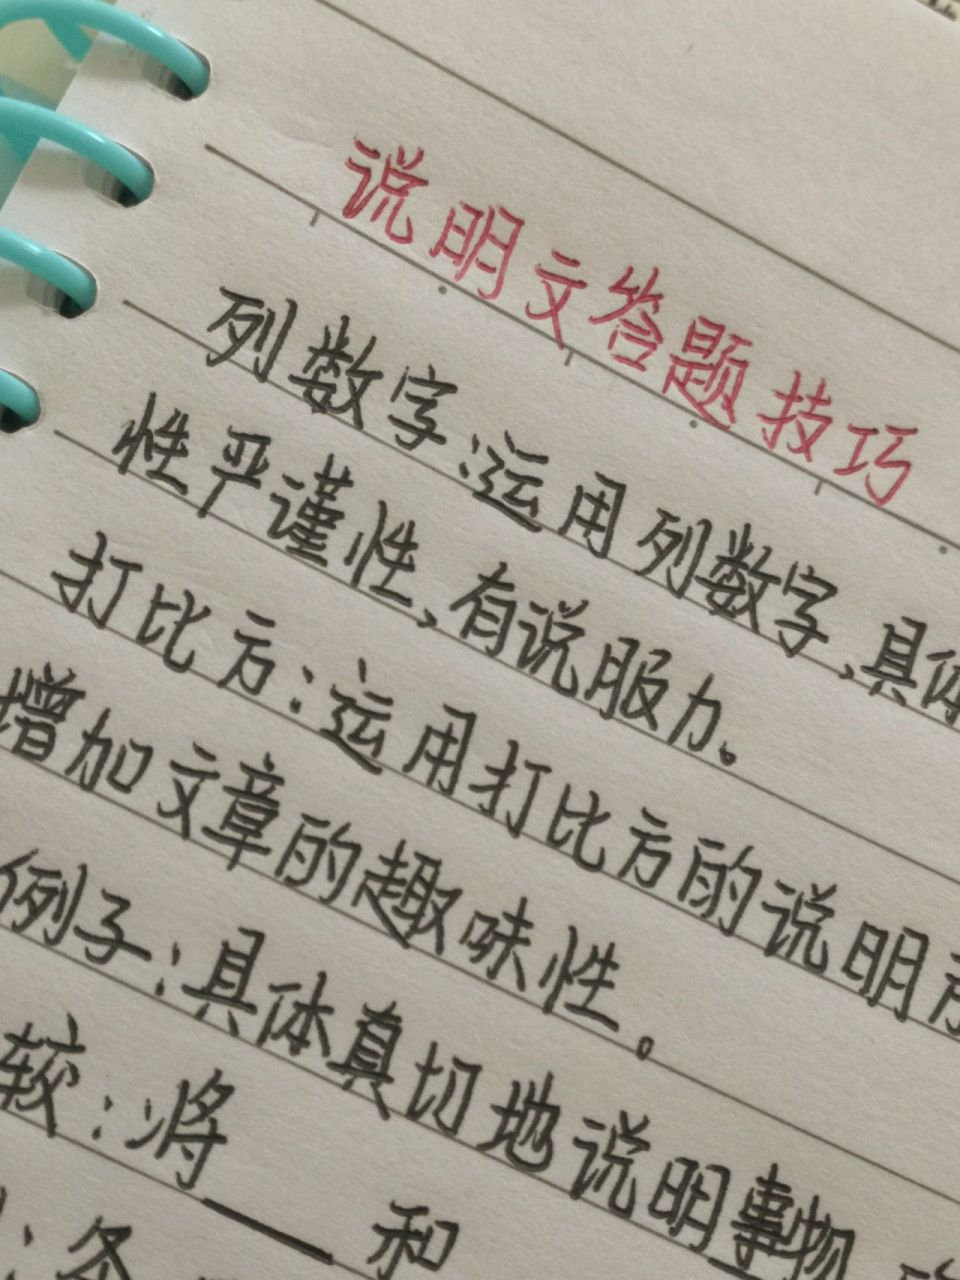 说明文答题技巧
列数字：运用列数字、具体
性严谨性、有说服力。
打比方：运用打比方的说明
增加文章的趣味性。
例子：具体真切地说明事物
较：将____和
：条